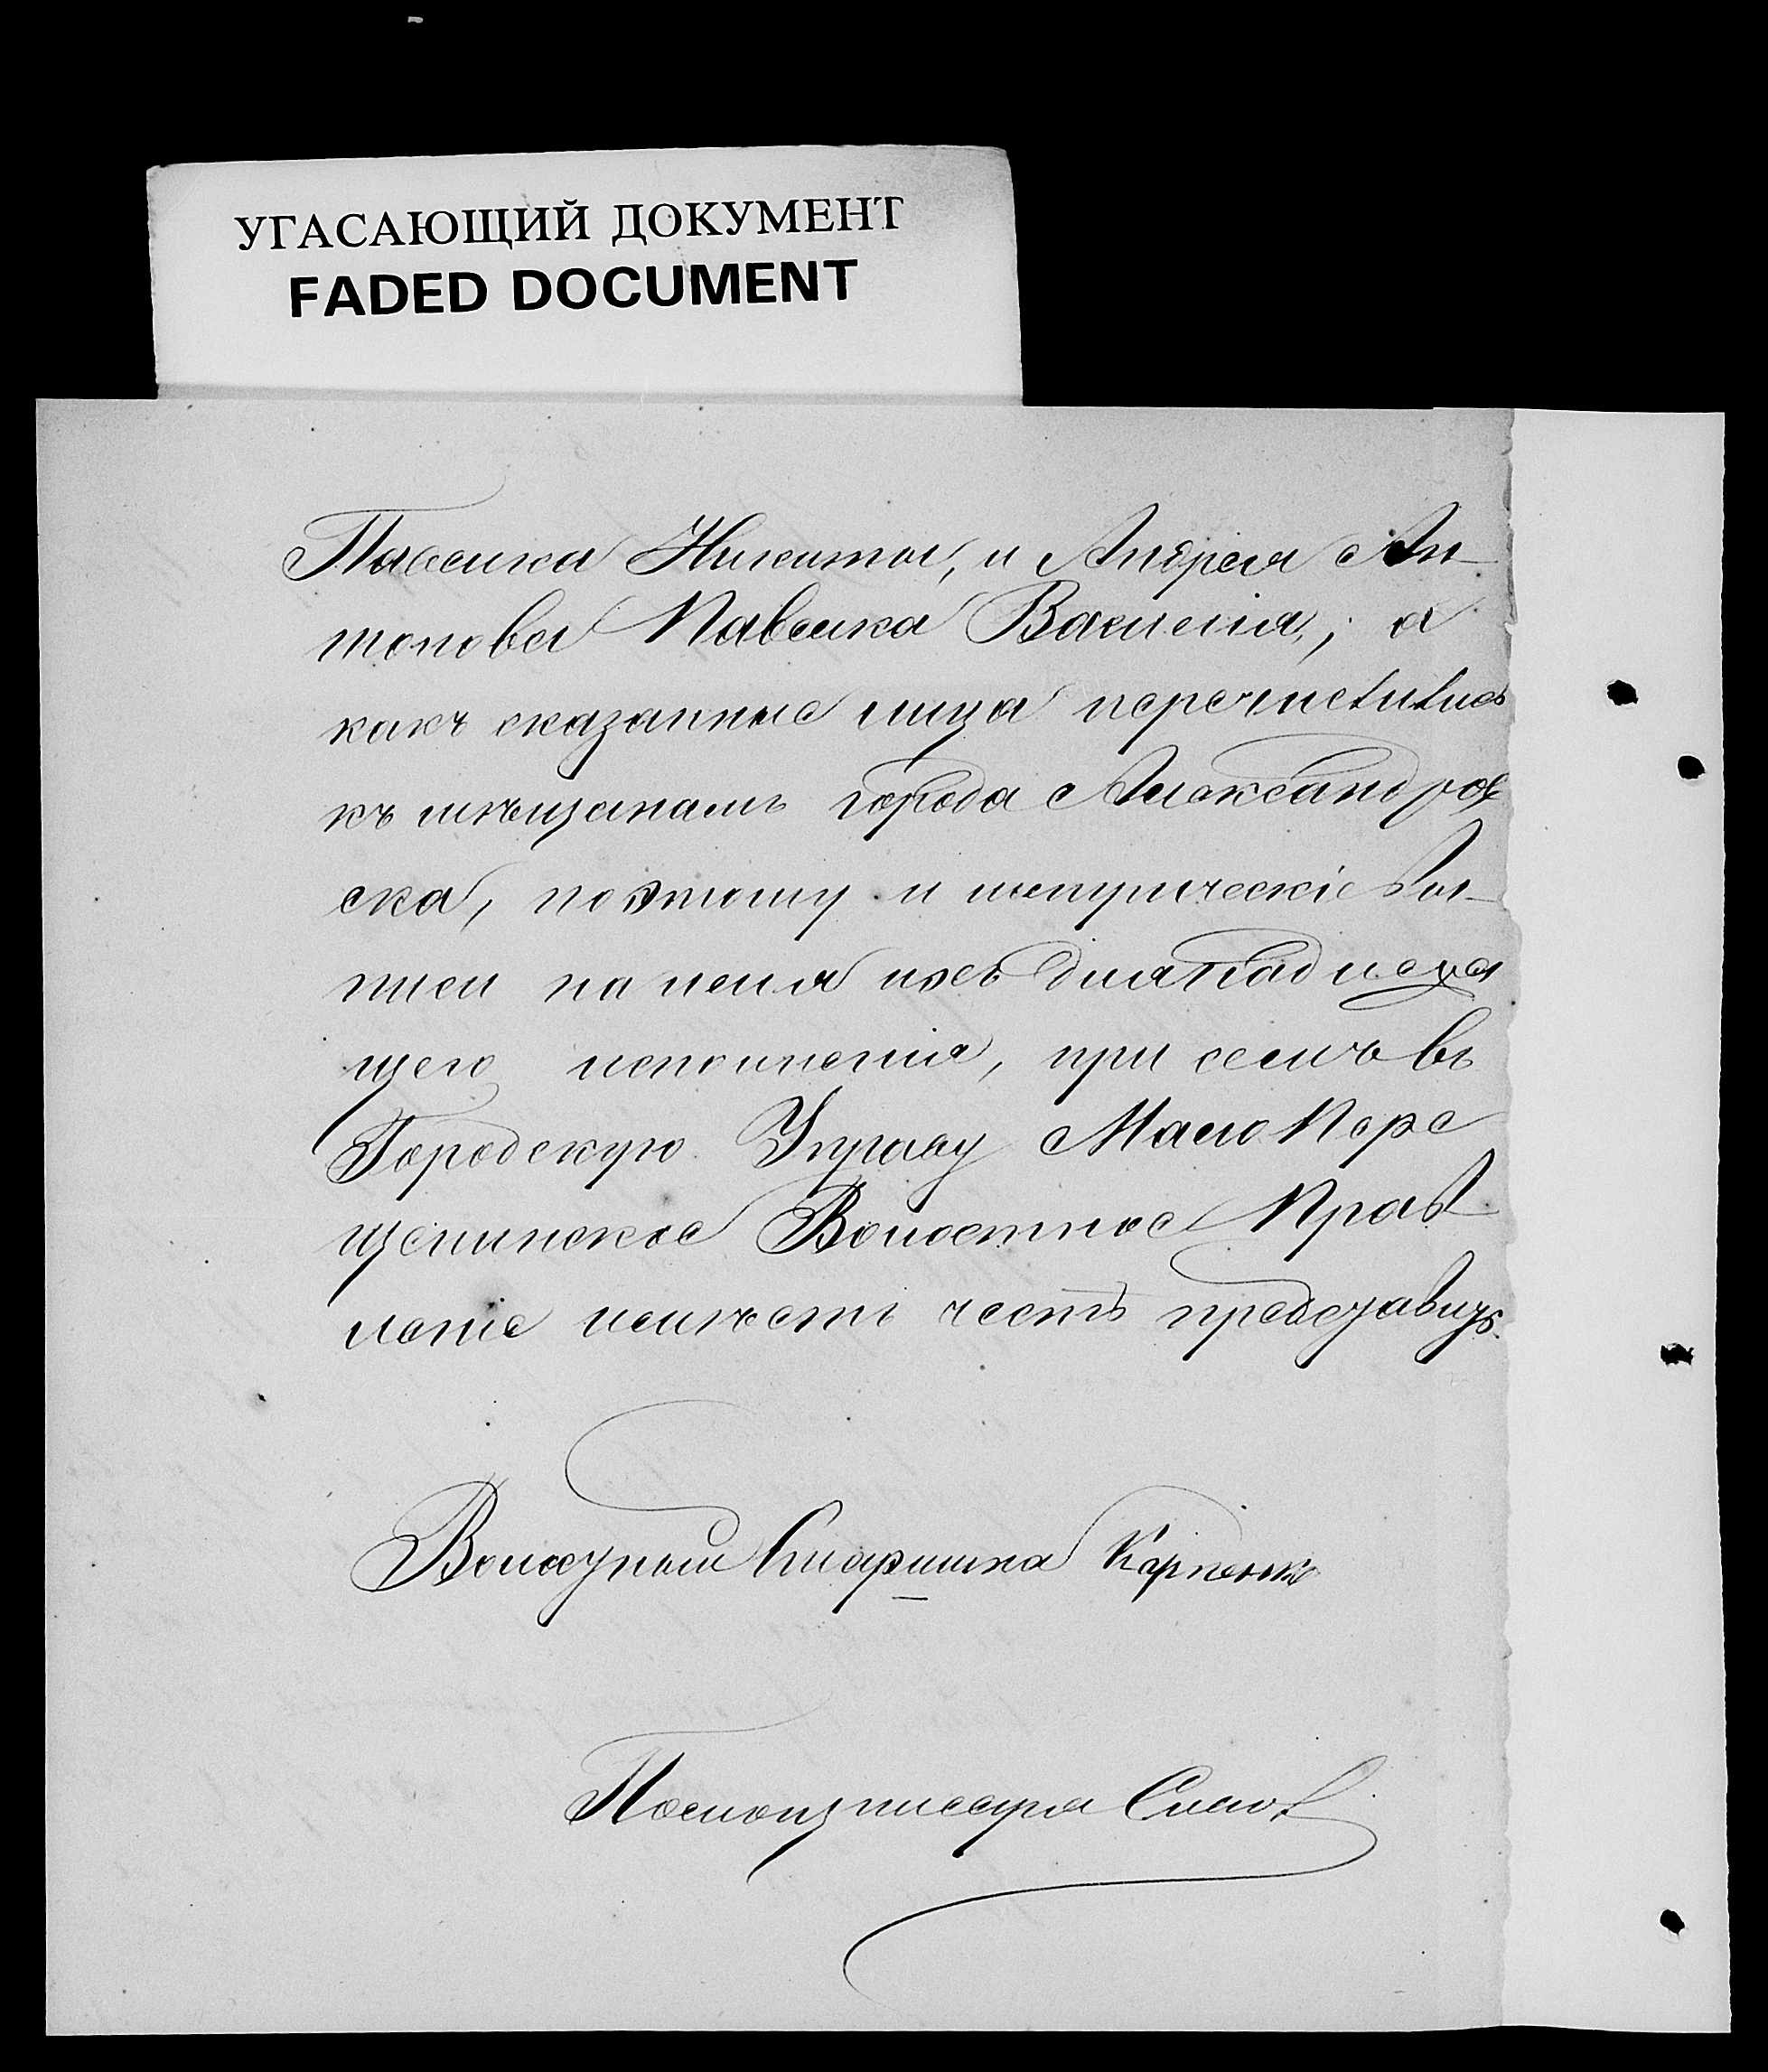 УГАСАЮЩИЙ ДОКУМЕНТ
FADED DOCUMENT
Павлика Никиты, и Андрея Ан-
тонова Павлика Василія; а
какъ сказанные лица перечислились
къ мѣщанамъ города Александров
ска, поэтому и метрическіе вы-
писи на имя ихъ для надлежа
щего исполненія, при семъ въ
Городскую Управу Мало Пере
щепинское Волостное Прав
леніе имѣетъ честь представить.
Волостный Старшина Карпенко
Помощ писаря